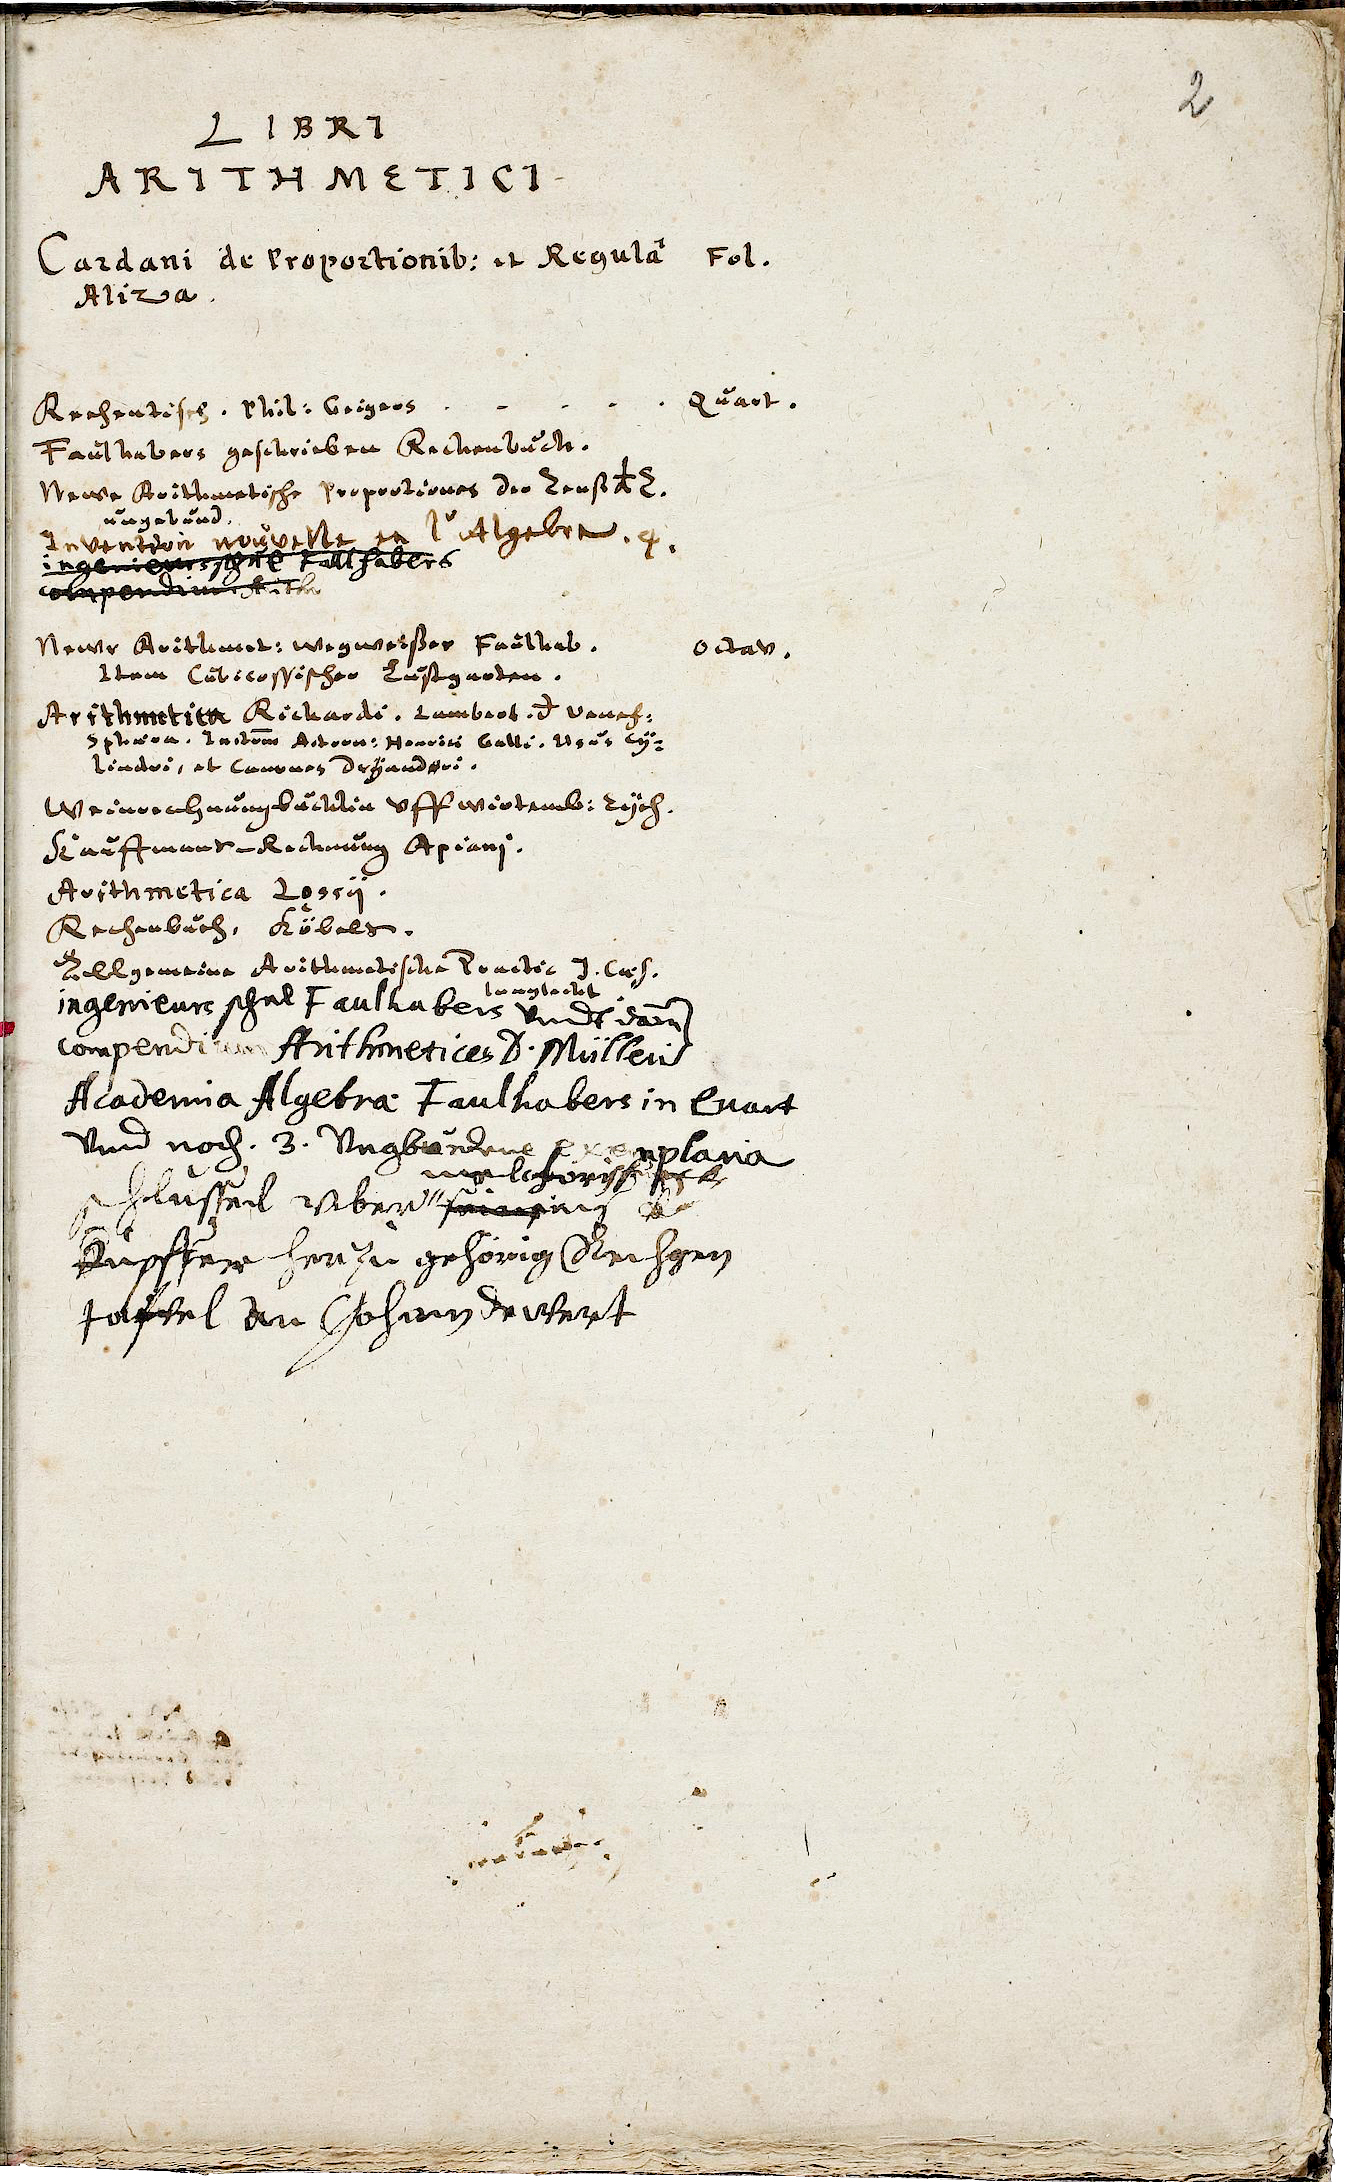 2
LIBRI
ARITHMETICI
Cardani de Proportionib: et Regulâ Fol.
Aliza.
Rechentisch. Phil: Geigers . - . . . Quart.
Faulhabers geschrieben Rechenbuch.
Newe Arithmetische Proportiones der
ungebund.
Invention nouvelle en l' Algebre. 4.
ingenieurs schul Faulhabers
compendium Arith
Newe Arithmet: Wegweißer Faulhab. Octav.
Item Cubicossischer Lustgarten.
Arithmetica Richardi. Lambert.
Sphaera. Henrici Usus Cÿ-
lindri, et Canones Drÿandri.
Weinrechnungbüchlin vff Wirtemb: Eÿch.
Kauffmans-Rechnung Apianj.
Arithmetica Lossij.
Rechenbuch, Köbels.
Allgemeine Arithmetische Practic J. Caes.
ingenieurs schul Faulhabers vndt dann
compendium Arithmetices D. Mülleri
Academia Algebrae Faulhabers in Quart
Vnd noch. 3. Vngbundene exemplaria
schlussel vber
Kupffer herzu gehörig Rechgen
taffel an Johan de Wert